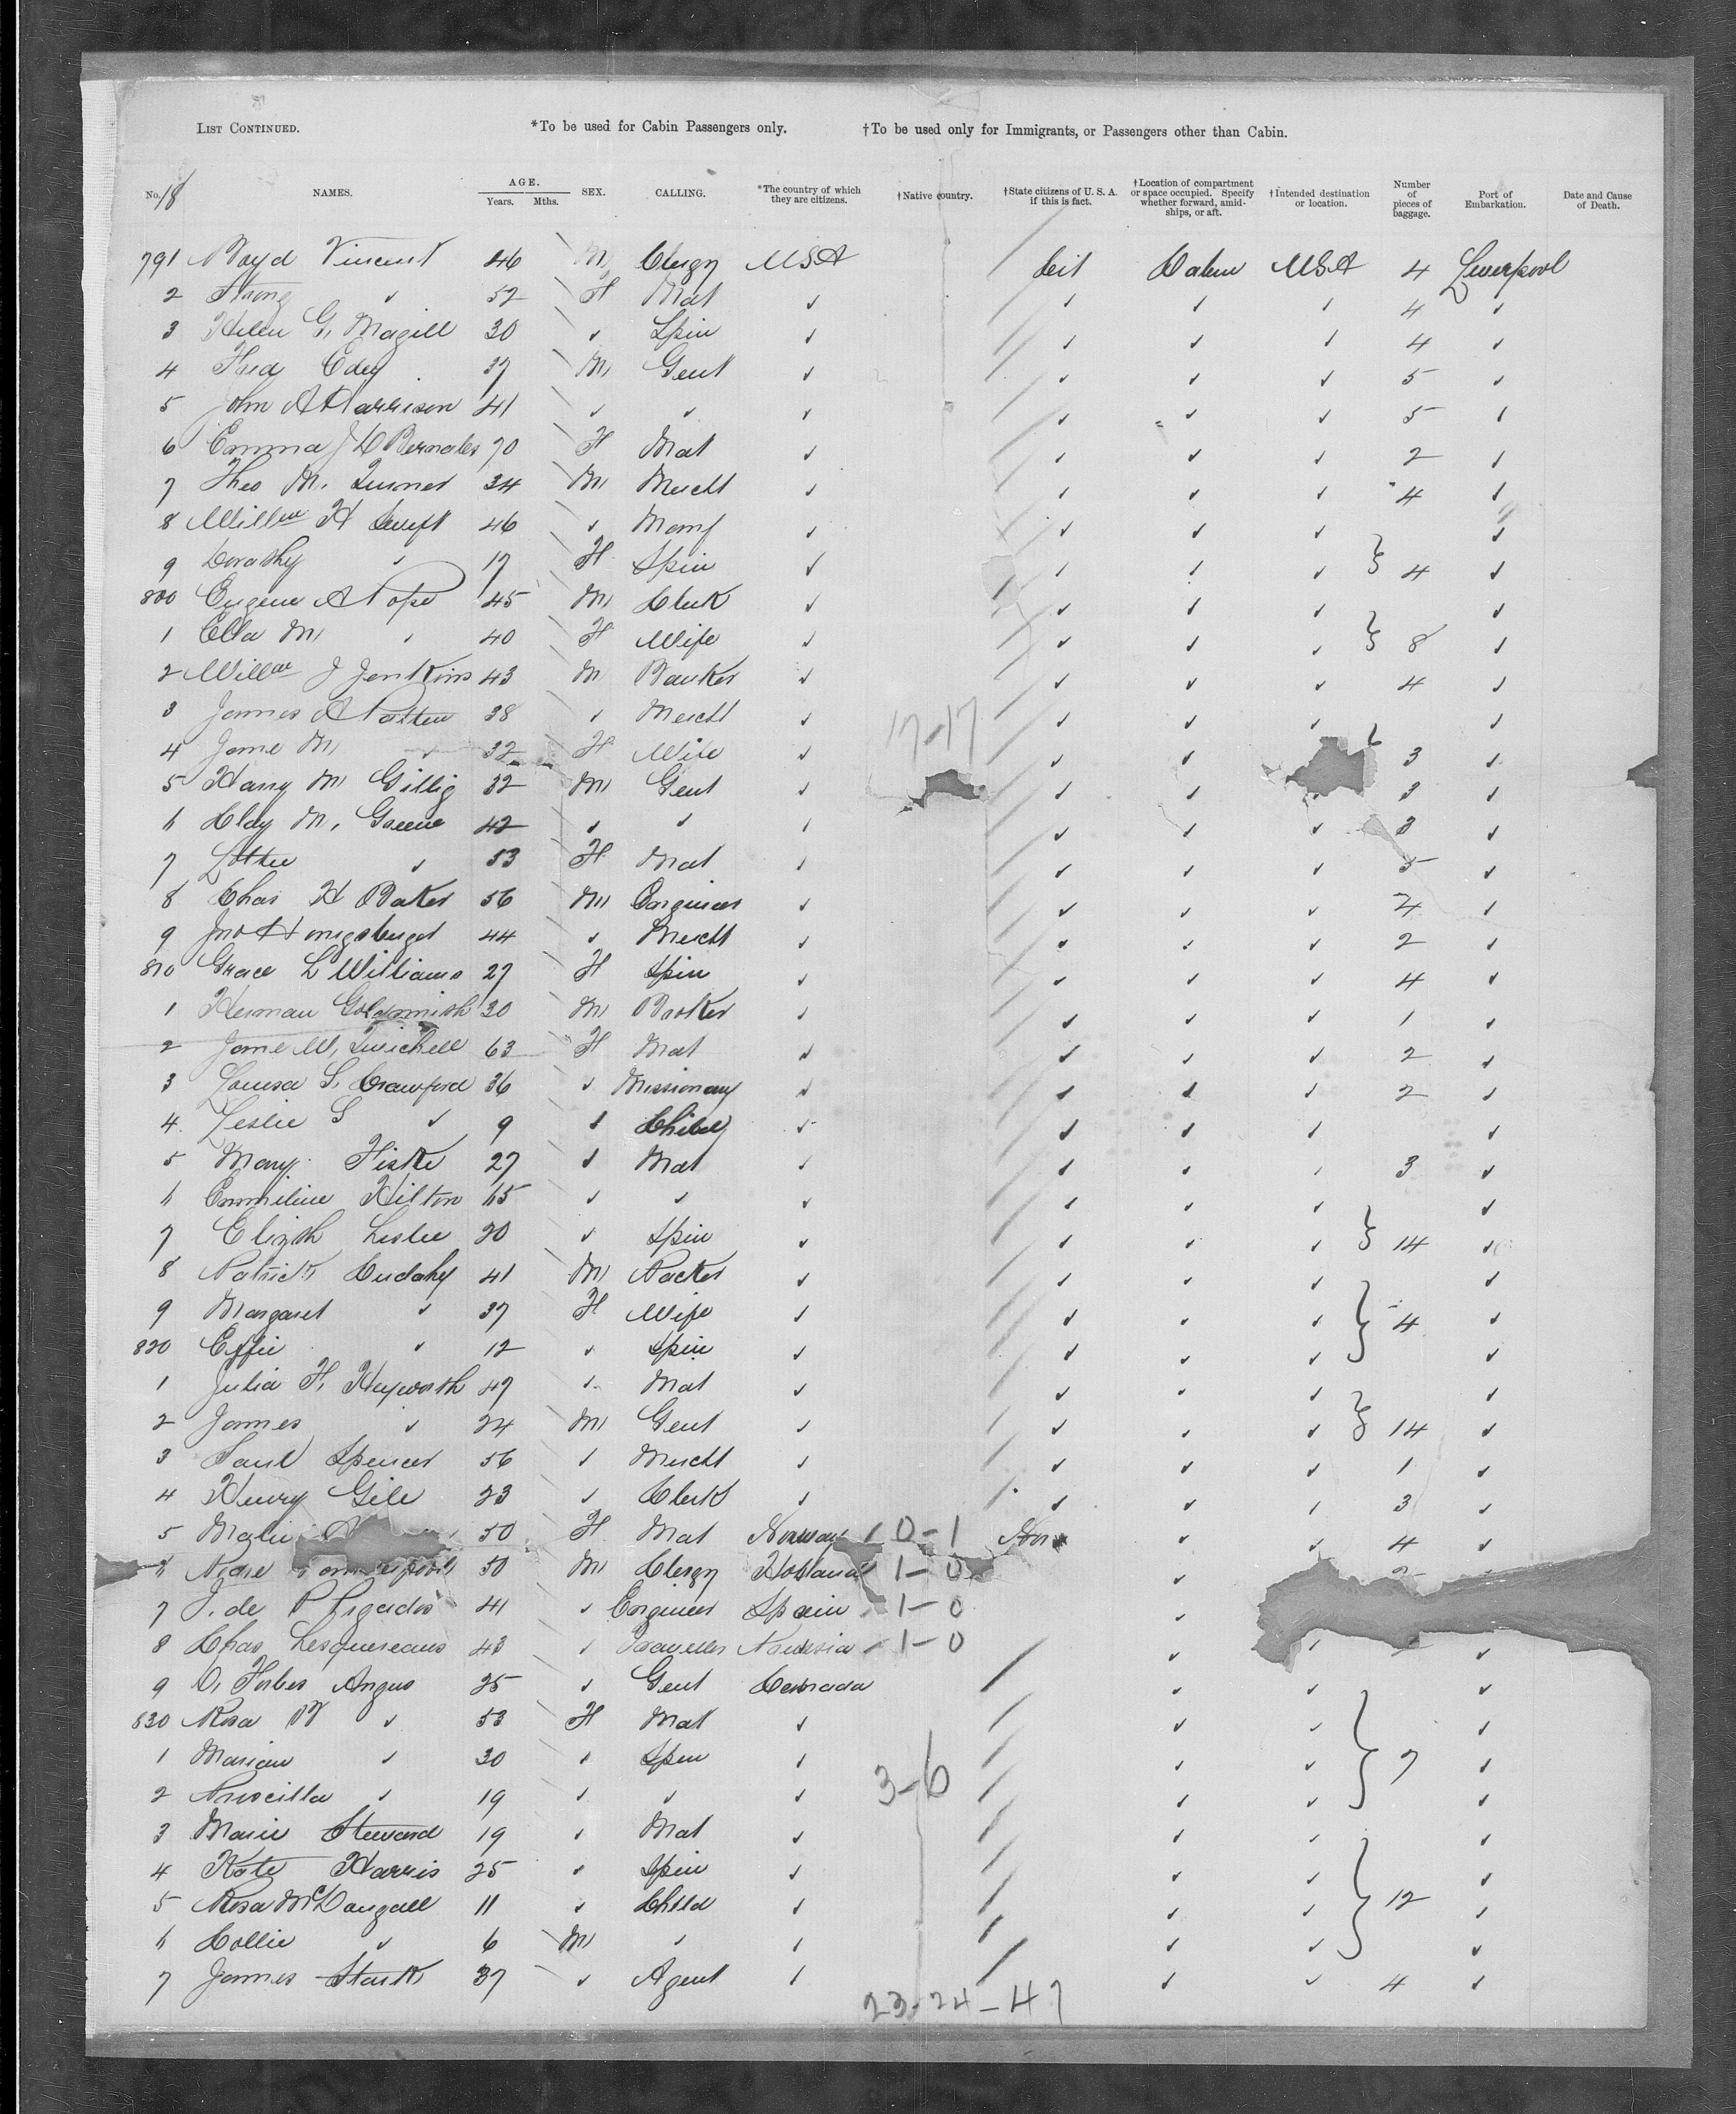 LIST CONTINUED. *To be used for Cabin Passengers only. †To be used only for Immigrants, or Passengers other than Cabin.
No. 18 NAMES. AGE. Years. Mths. SEX. CALLING. *The country of which they are citizens. †Native country. †State citizens of U. S. A. if this is fact. †Location of compartment or space occupied. Specify whether forward, amidships, or aft. †Intended destination or location. Number of pieces of baggage. Port of Embarkation. Date and Cause of Death.
791 Boyd Vincent 46 M Clergy USA Cit Cabin USA 4 Liverpool
2 ✓ 52 F Mat ✓ ✓ ✓ ✓ 4 ✓
3 Helen G. Magill 30 ✓ Spin ✓ ✓ ✓ ✓ 4 ✓
4 Fred Edey 37 M Gent ✓ ✓ ✓ ✓ 5 ✓
5 John A Harrison 41 ✓ ✓ ✓ ✓ ✓ ✓ 5 ✓
6 Emma J D Bernales 70 F Mat ✓ ✓ ✓ ✓ 2 ✓
7 Theo M. Turner 34 M Mercht ✓ ✓ ✓ ✓ 4 ✓
8 Willm H Swift 46 ✓ Manf ✓ ✓ ✓ ✓ ✓
9 Dorothy ✓ 17 F Spin ✓ ✓ ✓ ✓ } 4 ✓
800 Eugene A Pope 45 M Clerk ✓ ✓ ✓ ✓ ✓
1 Ella M ✓ 40 F Wife ✓ ✓ ✓ ✓ } 8 ✓
2 Willm J Jenkins 43 M Banker ✓ ✓ ✓ ✓ 4 ✓
3 James A Patten 38 ✓ Mercht ✓ 17-17 ✓ ✓ ✓ ✓
4 Jane M ✓ 32 F Wife ✓ ✓ ✓ 3 ✓
5 Harry M Gillig 32 M Gent ✓ ✓ ✓ 3 ✓
6 Clay M. Greene 42 ✓ ✓ ✓ ✓ ✓ ✓ 3 ✓
7 Lottie ✓ 53 F Mat ✓ ✓ ✓ ✓ 5 ✓
8 Chas H Baker 56 M Engineer ✓ ✓ ✓ ✓ ✓
9 Jno Honigsberger 44 ✓ Mercht ✓ ✓ ✓ ✓ 2 ✓
810 Grace L Williams 27 F Spin ✓ ✓ ✓ ✓ 4 ✓
1 Herman Goldsmith 30 M ✓ ✓ ✓ ✓ 1 ✓
2 Jane W. Twichell 63 F Mat ✓ ✓ ✓ ✓ 2 ✓
3 Louisa S. Crawford 36 ✓ Missionary ✓ ✓ ✓ ✓ 2 ✓
4 Leslie S ✓ 9 ✓ Child ✓ ✓ ✓ ✓ ✓
5 Mary Fiske 27 ✓ Mat ✓ ✓ ✓ ✓ 3 ✓
6 Emmiline Hilton 65 ✓ ✓ ✓ ✓ ✓ ✓ ✓
7 Elizth Leslie 20 ✓ Spin ✓ ✓ ✓ ✓ } 14 ✓
8 Patrick Cudahy 41 M Packer ✓ ✓ ✓ ✓ ✓
9 Margaret ✓ 37 F Wife ✓ ✓ ✓ ✓ } 4 ✓
820 Effie ✓ 12 ✓ Spin ✓ ✓ ✓ ✓ ✓
1 Julia F. Heyworth 47 ✓ Mat ✓ ✓ ✓ ✓ ✓
2 James ✓ 24 M Gent ✓ ✓ ✓ ✓ } 14 ✓
3 Saul Spencer 56 ✓ Mercht ✓ ✓ ✓ ✓ 1 ✓
4 Henry Gile 23 ✓ Clerk ✓ ✓ ✓ ✓ 3 ✓
5 50 F Mat Norway 0-1 Non ✓ ✓ 4 ✓
6 50 M Clergy Holland 1-0 ✓
7 J. de 41 ✓ Engineer Spain 1-0 ✓
8 Chas Lesquereaux 43 ✓ Traveller 1-0 ✓ ✓ ✓
9 D. Forbes Angus 25 ✓ Gent Canada ✓ ✓ ✓
830 Rosa W ✓ 53 F Mat ✓ ✓ ✓ ✓
1 Marian ✓ 30 ✓ Spin ✓ 3-6 ✓ ✓ } 7 ✓
2 Priscilla ✓ 19 ✓ ✓ ✓ ✓ ✓ ✓
3 Marie Steward 19 ✓ Mat ✓ ✓ ✓ ✓
4 Kate Harris 25 ✓ Spin ✓ ✓ ✓ ✓
5 Rosa McDougall 11 ✓ Child ✓ ✓ ✓ } 12 ✓
6 Collie ✓ 6 M ✓ ✓ ✓ ✓ ✓
7 James Stark 37 ✓ Agent ✓ ✓ ✓ 4 ✓
23-24-47